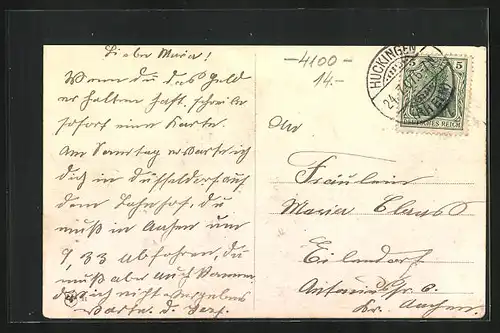 Liebe Maria!
Wenn du das Geld
erhalten hast, schreibe
sofort eine Karte.
Am Sonntag erwarte ich
dich in Düsseldorf auf
dem Bahnhof, du
muß in Aachen um
9,33 abfahren, du
muß aber auch kommen
das ich nicht vergebens
warte. d.
-4100-
14.-
HUCKINGEN
24.7.
(RHEIN)
5 5
DEUTSCHES REICH
An
Fräulein
Maria Claus
Eilendorf
Antoniusstr. 6.
Kr. Aachen.